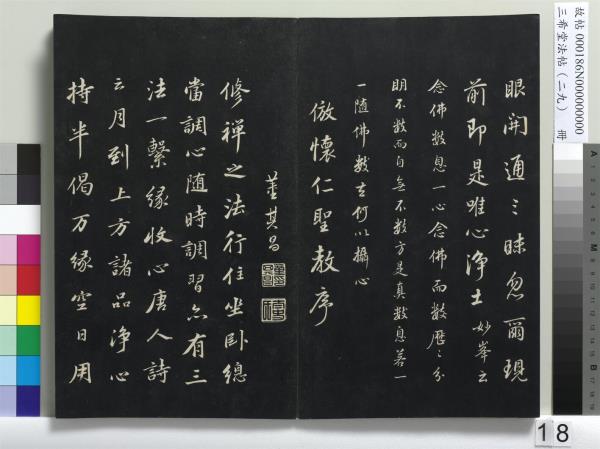 眼開通〻昧忽爾現
前即是唯心淨土妙峯云
念佛數息一心念佛而數歷〻分
明不數而自無不數方是真數息若一
一隨佛數去何以攝心
倣懷仁聖教序
董其昌
修禪之法行住坐卧總
當調心隨時調習亦有三
法一繫緣收心唐人詩
云月到上方諸品淨心
持半偈万緣空日用
故帖000186N000000000
三希堂法帖(二九) 冊
18
A
M
B